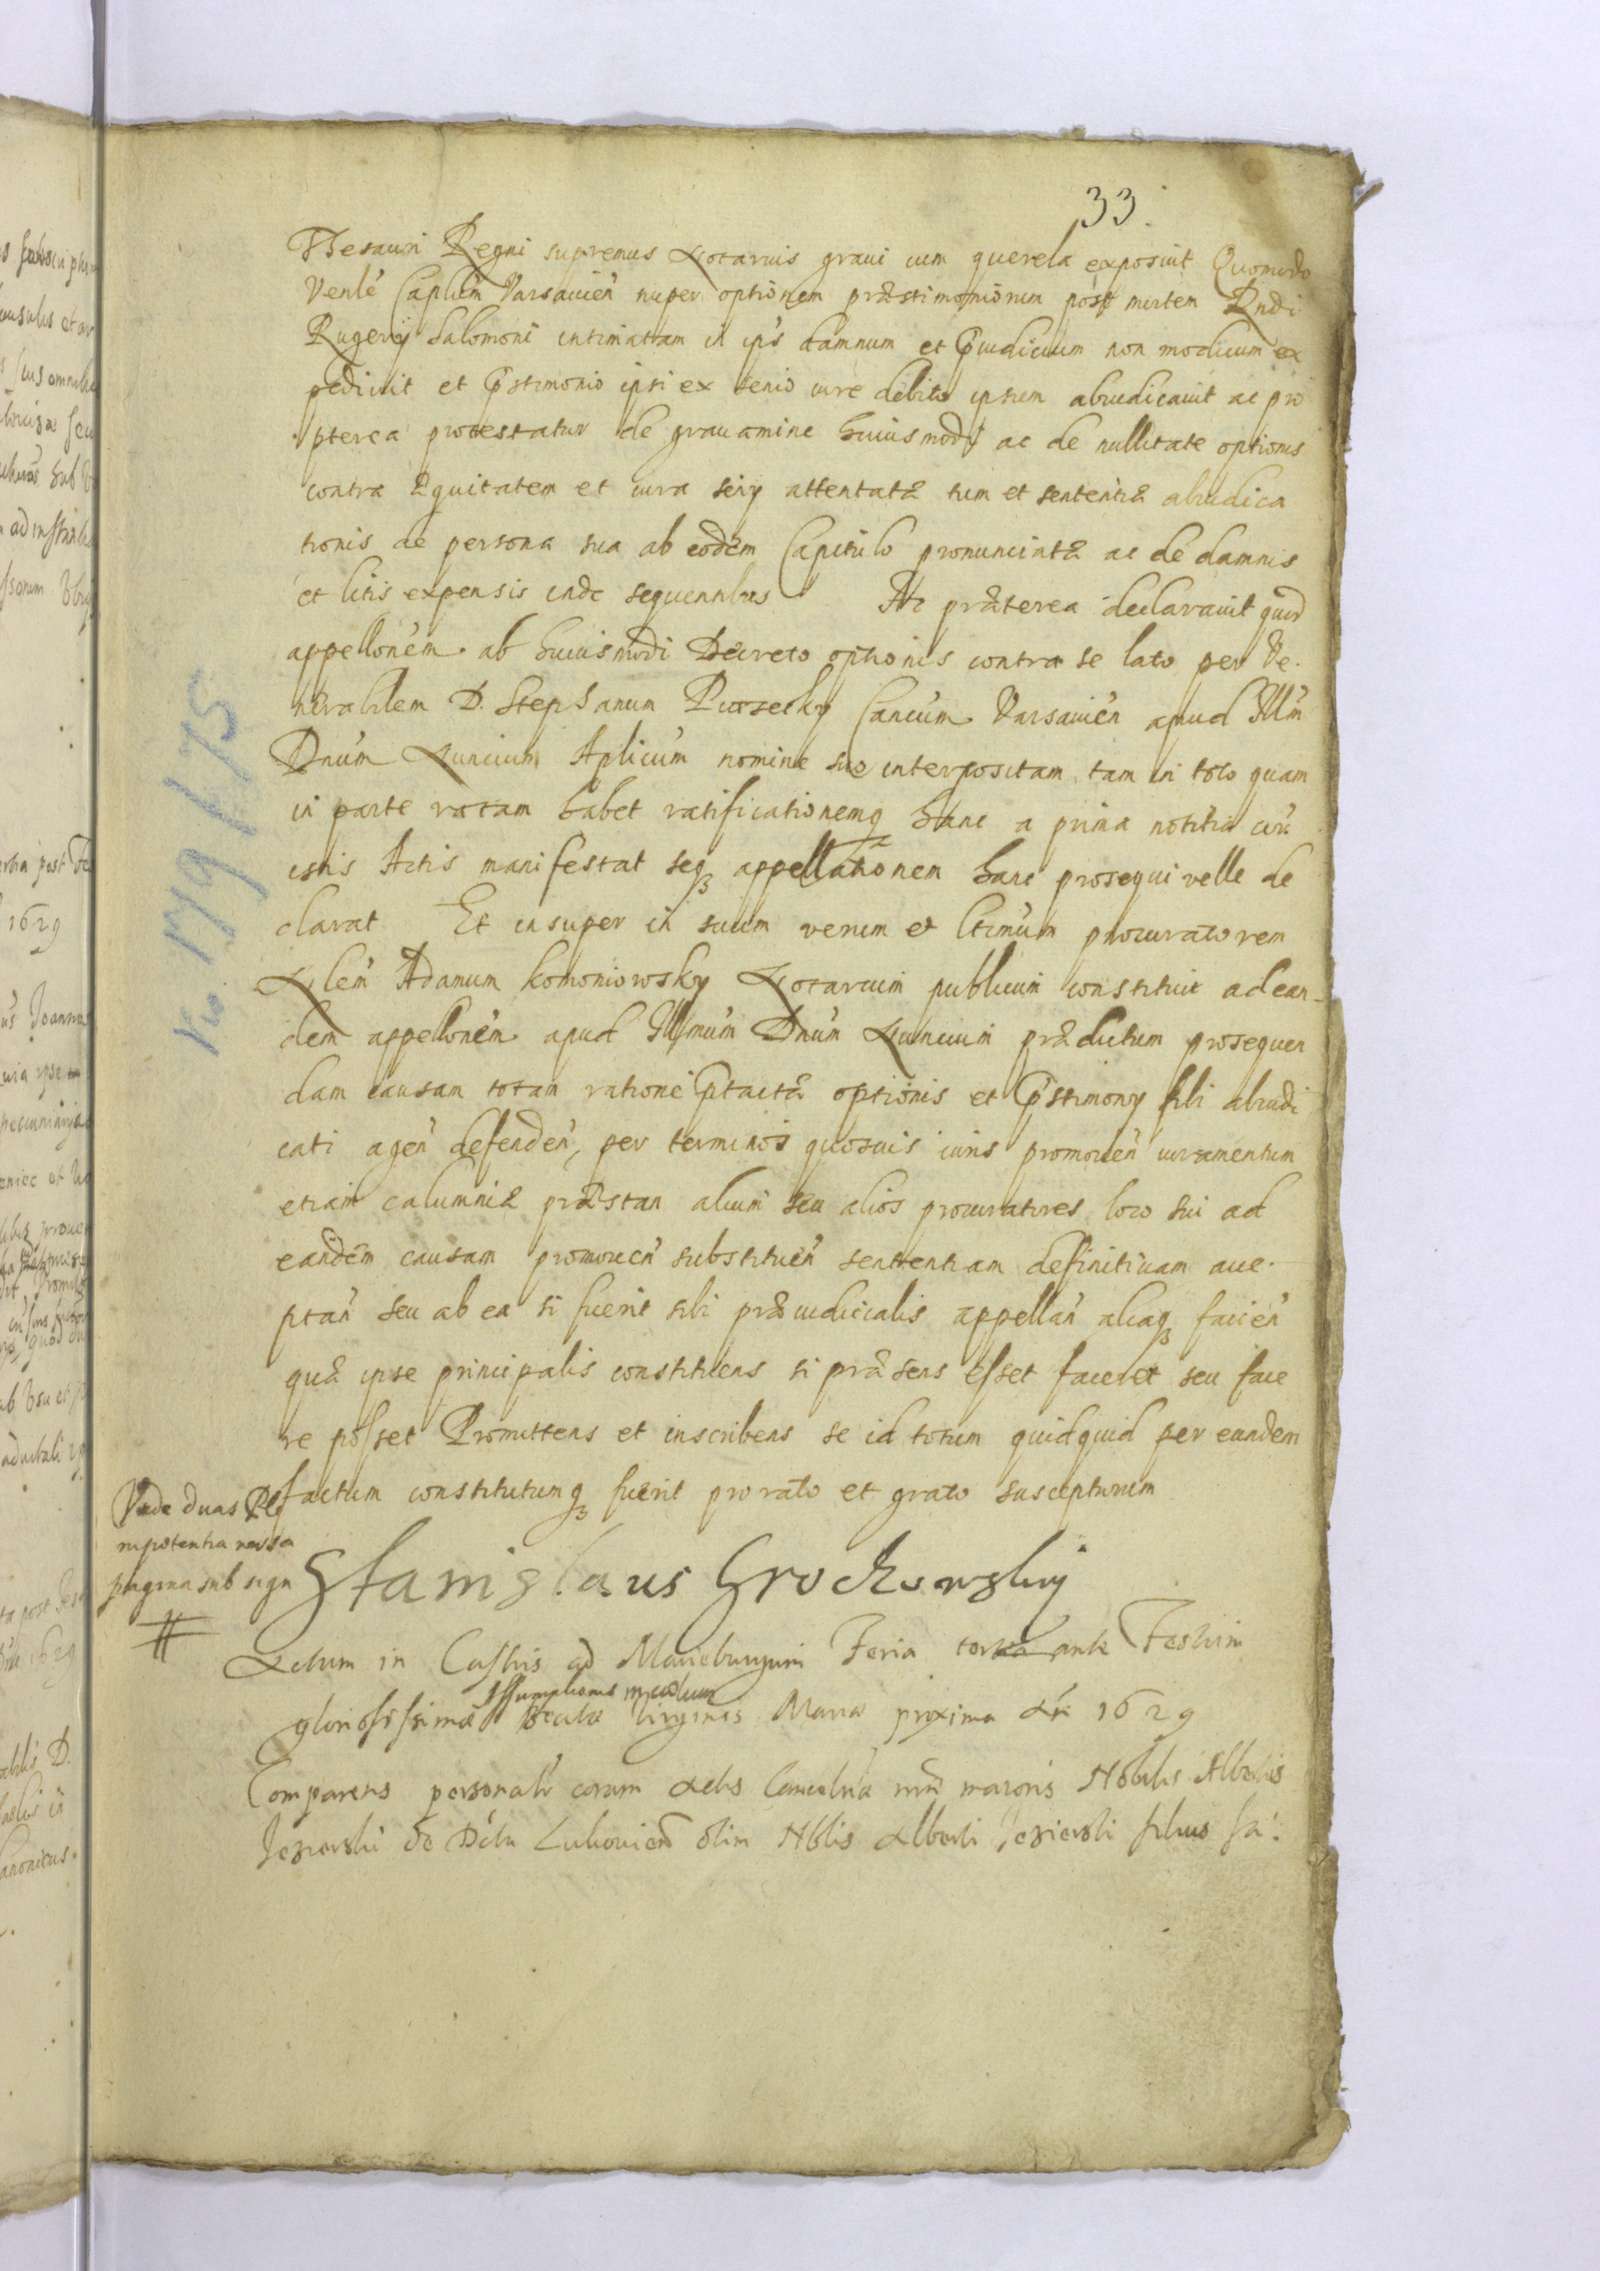 33.
Thesauri Regni supremus Notarius graui cum querela exposuit Quomodo
Venle Caplum Varsauien nuper optionem præstimoniorum post mortem Rndi
Rugerij Salomoni intimatam in ips damnum et Piudicium non modicum ex
pediuit et Pstimonio ipsi ex senio iure debito ipsum abiudicauit ac pro
pterea protestatur de grauamine huiusmodi ac de nullitate optionis
contra æquitatem et iura senij attentatæ tum et sententiæ abiudica
tionis de persona sua ab eodem Capitulo pronunciatæ ac de damnis
et litis expensis inde sequentibus Ac præterea declarauit quod
appellonem ab huiusmodi Decreto optionis contra se lato per Ve
nerabilem D. Stephanum Cancum Varsauien apud Illm
Dnum Nuncium Aplicum nomine suo interpositam tam in toto quam
in parte ratam habet ratificationemq hanc a prima notitia
istis Actis manifestat seq appellationem hanc prosequi velle de
clarat Et insuper in suum verum et ltimum procuratorem
Nlem Adamum Komoniowsky Notarium publicum constituit ad ean
dem appellonem apud Illmum Dnum Nuncium prædictum prosequen
dam causam totam ratione Ptactæ optionis et Pstimonij sibi abiudi
cati agen defenden, per terminos quosuis iuris promouen iuramentum
etiam calumniæ præstan alium seu alios procuratores loco sui ad
eandem causam promouen substituen sententiam definitiuam acce
ptan seu ab ea si fuerit sibi præiudicialis appellan aliaq facien
quæ ipse principalis constituens si præsens esset faceret seu face
re posset Promittens et inscribens se id totum quidquid per eundem
factum constitutumq fuerit pro rato et grato suscepturum
Vide duas Ple
nipotentia
pagina sub sign
#
Stanislaus Grochowskij
Actum in Castris ad Marieburgum Feria tertia ante Festum
Assumptionis in cœlum
gloriosissimæ Beatæ Virginis Mariæ proxima An 1629
Comparens personalr coram Actis Cancelria mri maioris Nobilis Albertus
Jezierski de Lukouien olim Nblis Alberti Jezierski filius
No. 179 k. 75